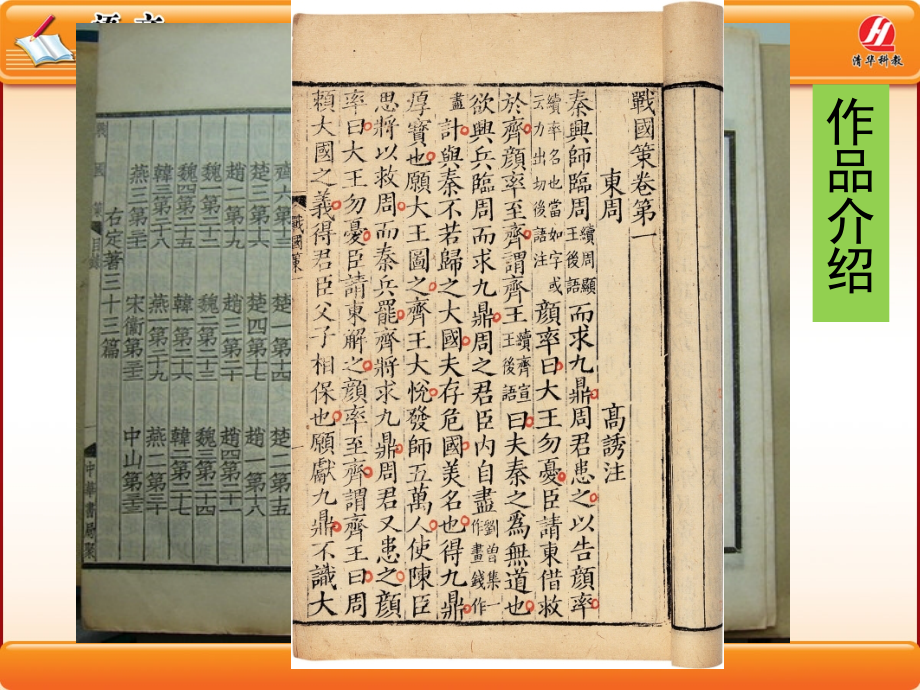 清华科教
作品介绍
戰國策卷第一
東周 高誘注
秦興師臨周續周顯王後語而求九鼎周君患之以告顔率
續率名也當如字或云力出切後語注顔率曰大王勿憂臣請東借救
於齊顔率至齊謂齊王續齊宣王後語曰夫秦之爲無道也
欲興兵臨周而求九鼎周之君臣內自盡劉曾集一作畫錢作
盡計與秦不若歸之大國夫存危國美名也得九鼎
厚寶也願大王圖之齊王大悅發師五萬人使陳臣
思將以救周而秦兵罷齊將求九鼎周君又患之顔
率曰大王勿憂臣請東解之顔率至齊謂齊王曰周
賴大國之義得君臣父子相保也願獻九鼎不識大
戰國策 一
齊六第十三 楚一第十四 楚二第十五
楚三第十六 楚四第十七 趙一第十八
趙二第十九 趙三第二十 趙四第二十一
魏一第二十二 魏二第二十三 魏三第二十四
魏四第二十五 韓一第二十六 韓二第二十七
韓三第二十八 燕一第二十九 燕二第三十
燕三第三十一 宋衞第三十二 中山第三十三
右定著三十三篇
戰國策 目錄 中華書局聚